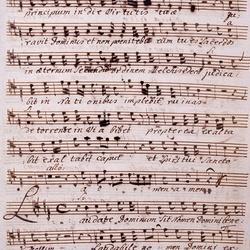 principium in die Virtutis tuae
ravit Dominus et non penitebit eum tu es Sacerdos
in aeternum Secundum ordinem Melchisedech judica
bit in nationibus implebit ruinas
de torrente in via bibet propterea exalta
bit exaltabit caput et Spiritui Sancto
men a men
Laudate Dominum Sit Nomen Domini bene
Laudabile nomen Domini